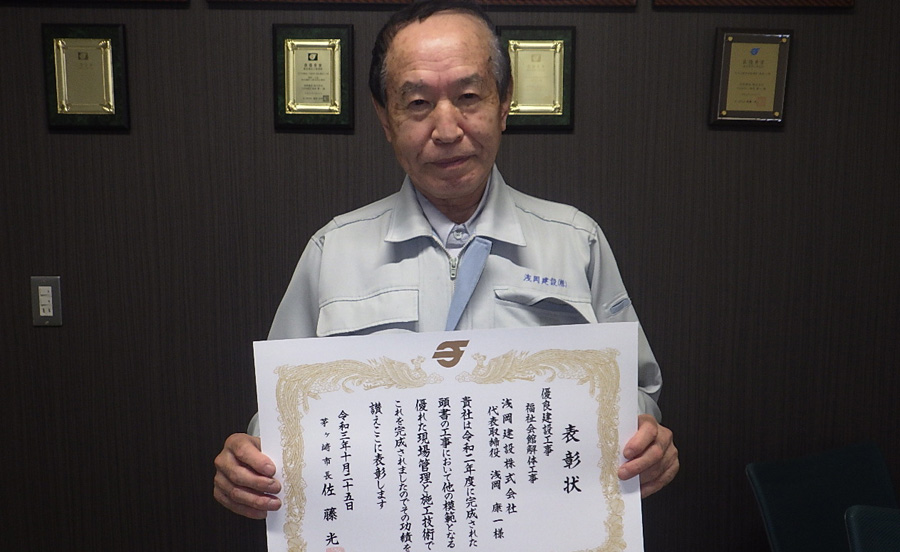 浅岡建設(株)
表彰状
優良建設工事
福祉会館解体工事
浅岡建設株式会社
代表取締役 浅岡 康一様
貴社は令和二年度に完成された
頭書の工事において他の模範となる
優れた現場管理と施工技術で
これを完成されましたのでその功績を
讃えここに表彰します
令和三年十月二十五日
茅ヶ崎市長 佐藤 光